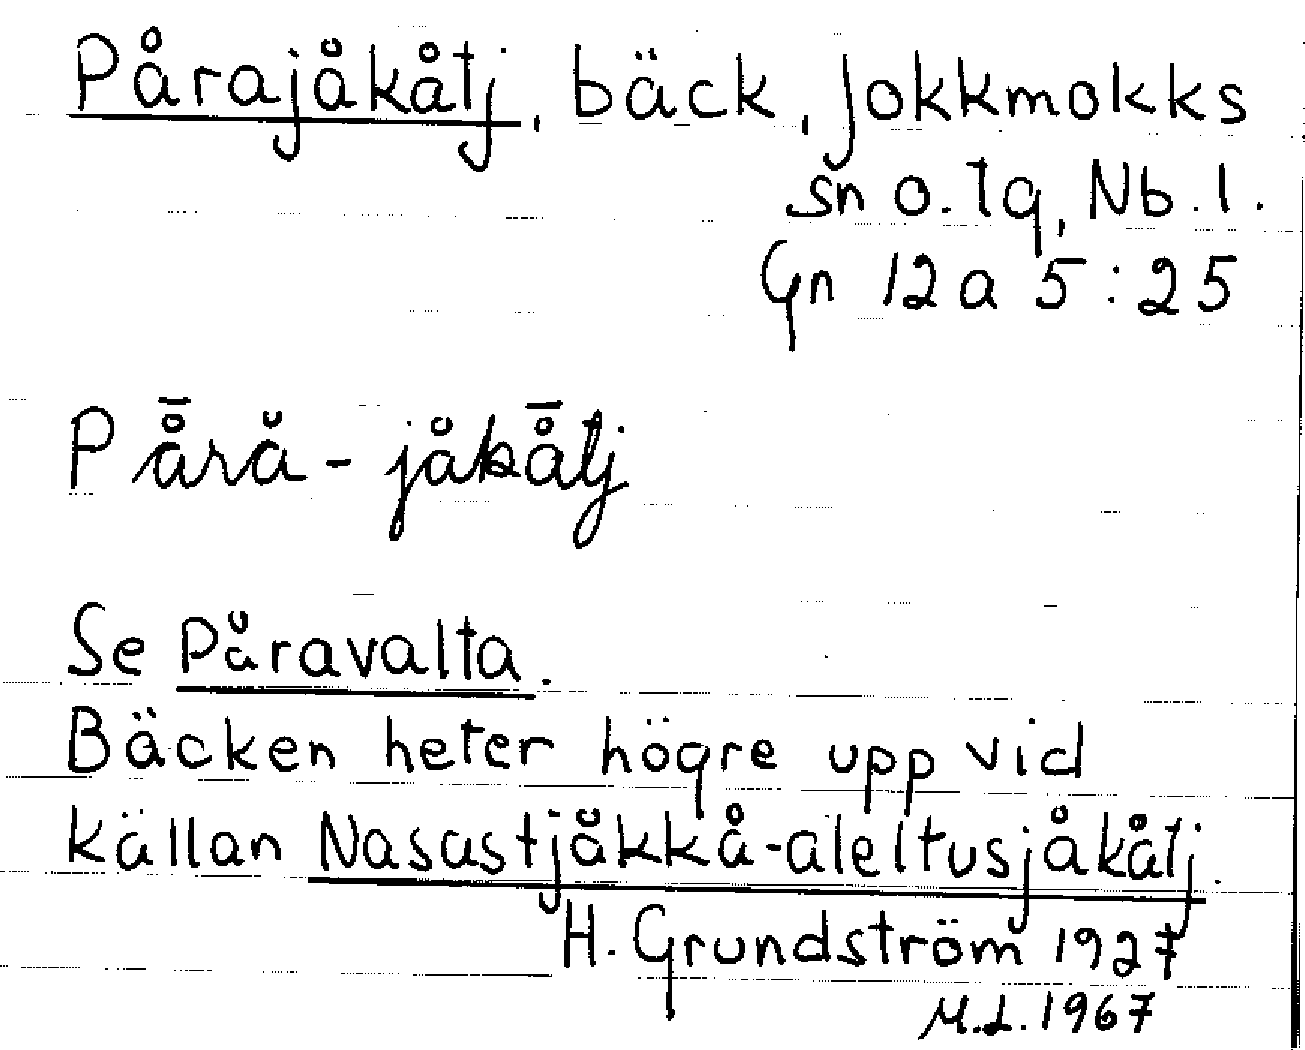 Pårajåkåtj, bäck, Jokkmokks
sn o. lq, Nb. l.
Gn 12 a 5:25
P å̄ră̊ - jåkå̄tj
Se Påravalta.
Bäcken heter högre upp vid
källan Nasastjåkkå-aleltusjåkåtj.
H. Grundström 1927
M.L. 1967